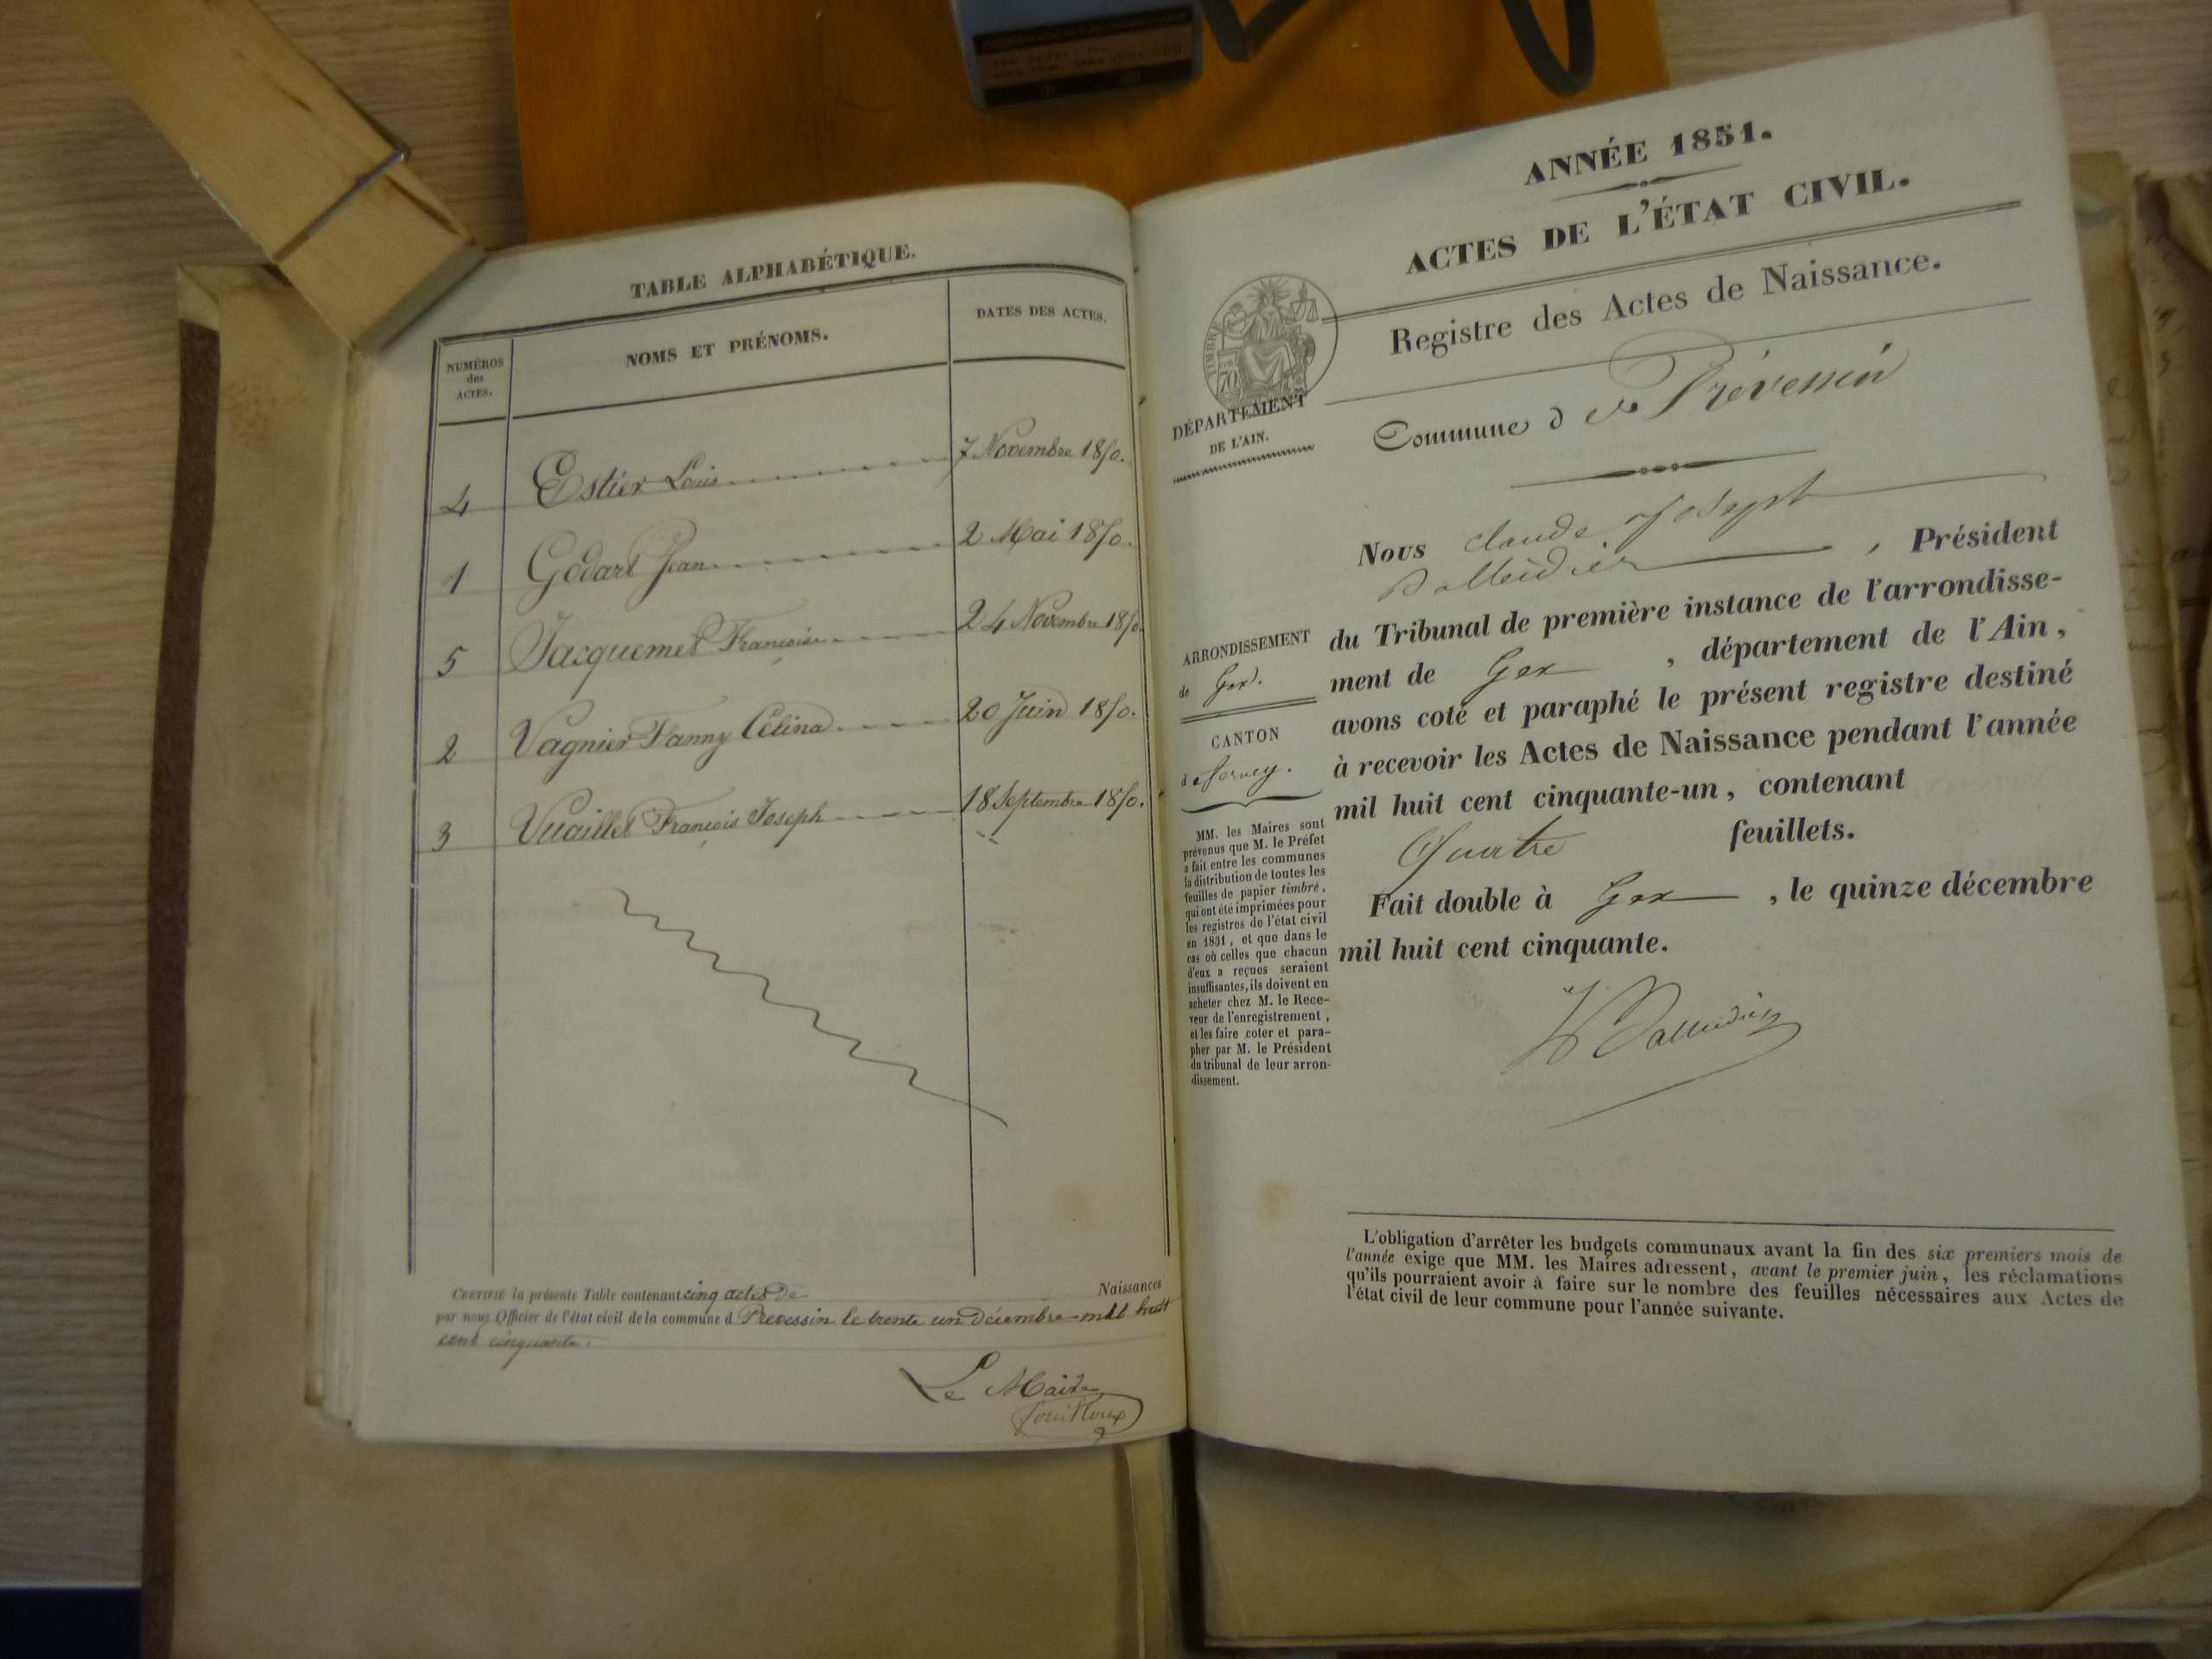 TABLE ALPHABÉTIQUE.
NUMÉROS
des
ACTES.
NOMS ET PRÉNOMS.
DATES DES ACTES.
4 Estier Louis 7 Novembre 1850.
1 Godart Jean 2 Mai 1850.
5 Jacquemet Françoise 24 Novembre 1850.
2 Vagnier Fanny Célina 20 Juin 1850.
3 Vuaillet François Joseph 18 Septembre 1850.
CERTIFIÉ la présente Table contenant cinq actes de Naissances
par nous Officier de l'état civil de la commune d Prevessin le trente un Décembre mil huit
cent cinquante.
Le Maire
ANNÉE 1851.
ACTES DE L'ÉTAT CIVIL.
Registre des Actes de Naissance.
TIMBRE
70
DÉPARTEMENT
DE L'AIN.
Commune d e Prévessin
Nous Claude Joseph
, Président
du Tribunal de première instance de l'arrondisse-
ment de Gex , département de l'Ain,
avons coté et paraphé le présent registre destiné
à recevoir les Actes de Naissance pendant l'année
mil huit cent cinquante-un, contenant
Quatre feuillets.
Fait double à Gex , le quinze décembre
mil huit cent cinquante.
ARRONDISSEMENT
de Gex.
CANTON
de Ferney.
MM. les Maires sont
prévenus que M. le Préfet
a fait entre les communes
la distribution de toutes les
feuilles de papier timbré,
qui ont été imprimées pour
les registres de l'état civil
en 1851, et que dans le
cas où celles que chacun
d'eux a reçues seraient
insuffisantes, ils doivent en
acheter chez M. le Rece-
veur de l'enregistrement,
et les faire coter et para-
pher par M. le Président
du tribunal de leur arron-
dissement.
L'obligation d'arrêter les budgets communaux avant la fin des six premiers mois de
l'année exige que MM. les Maires adressent, avant le premier juin, les réclamations
qu'ils pourraient avoir à faire sur le nombre des feuilles nécessaires aux Actes de
l'état civil de leur commune pour l'année suivante.